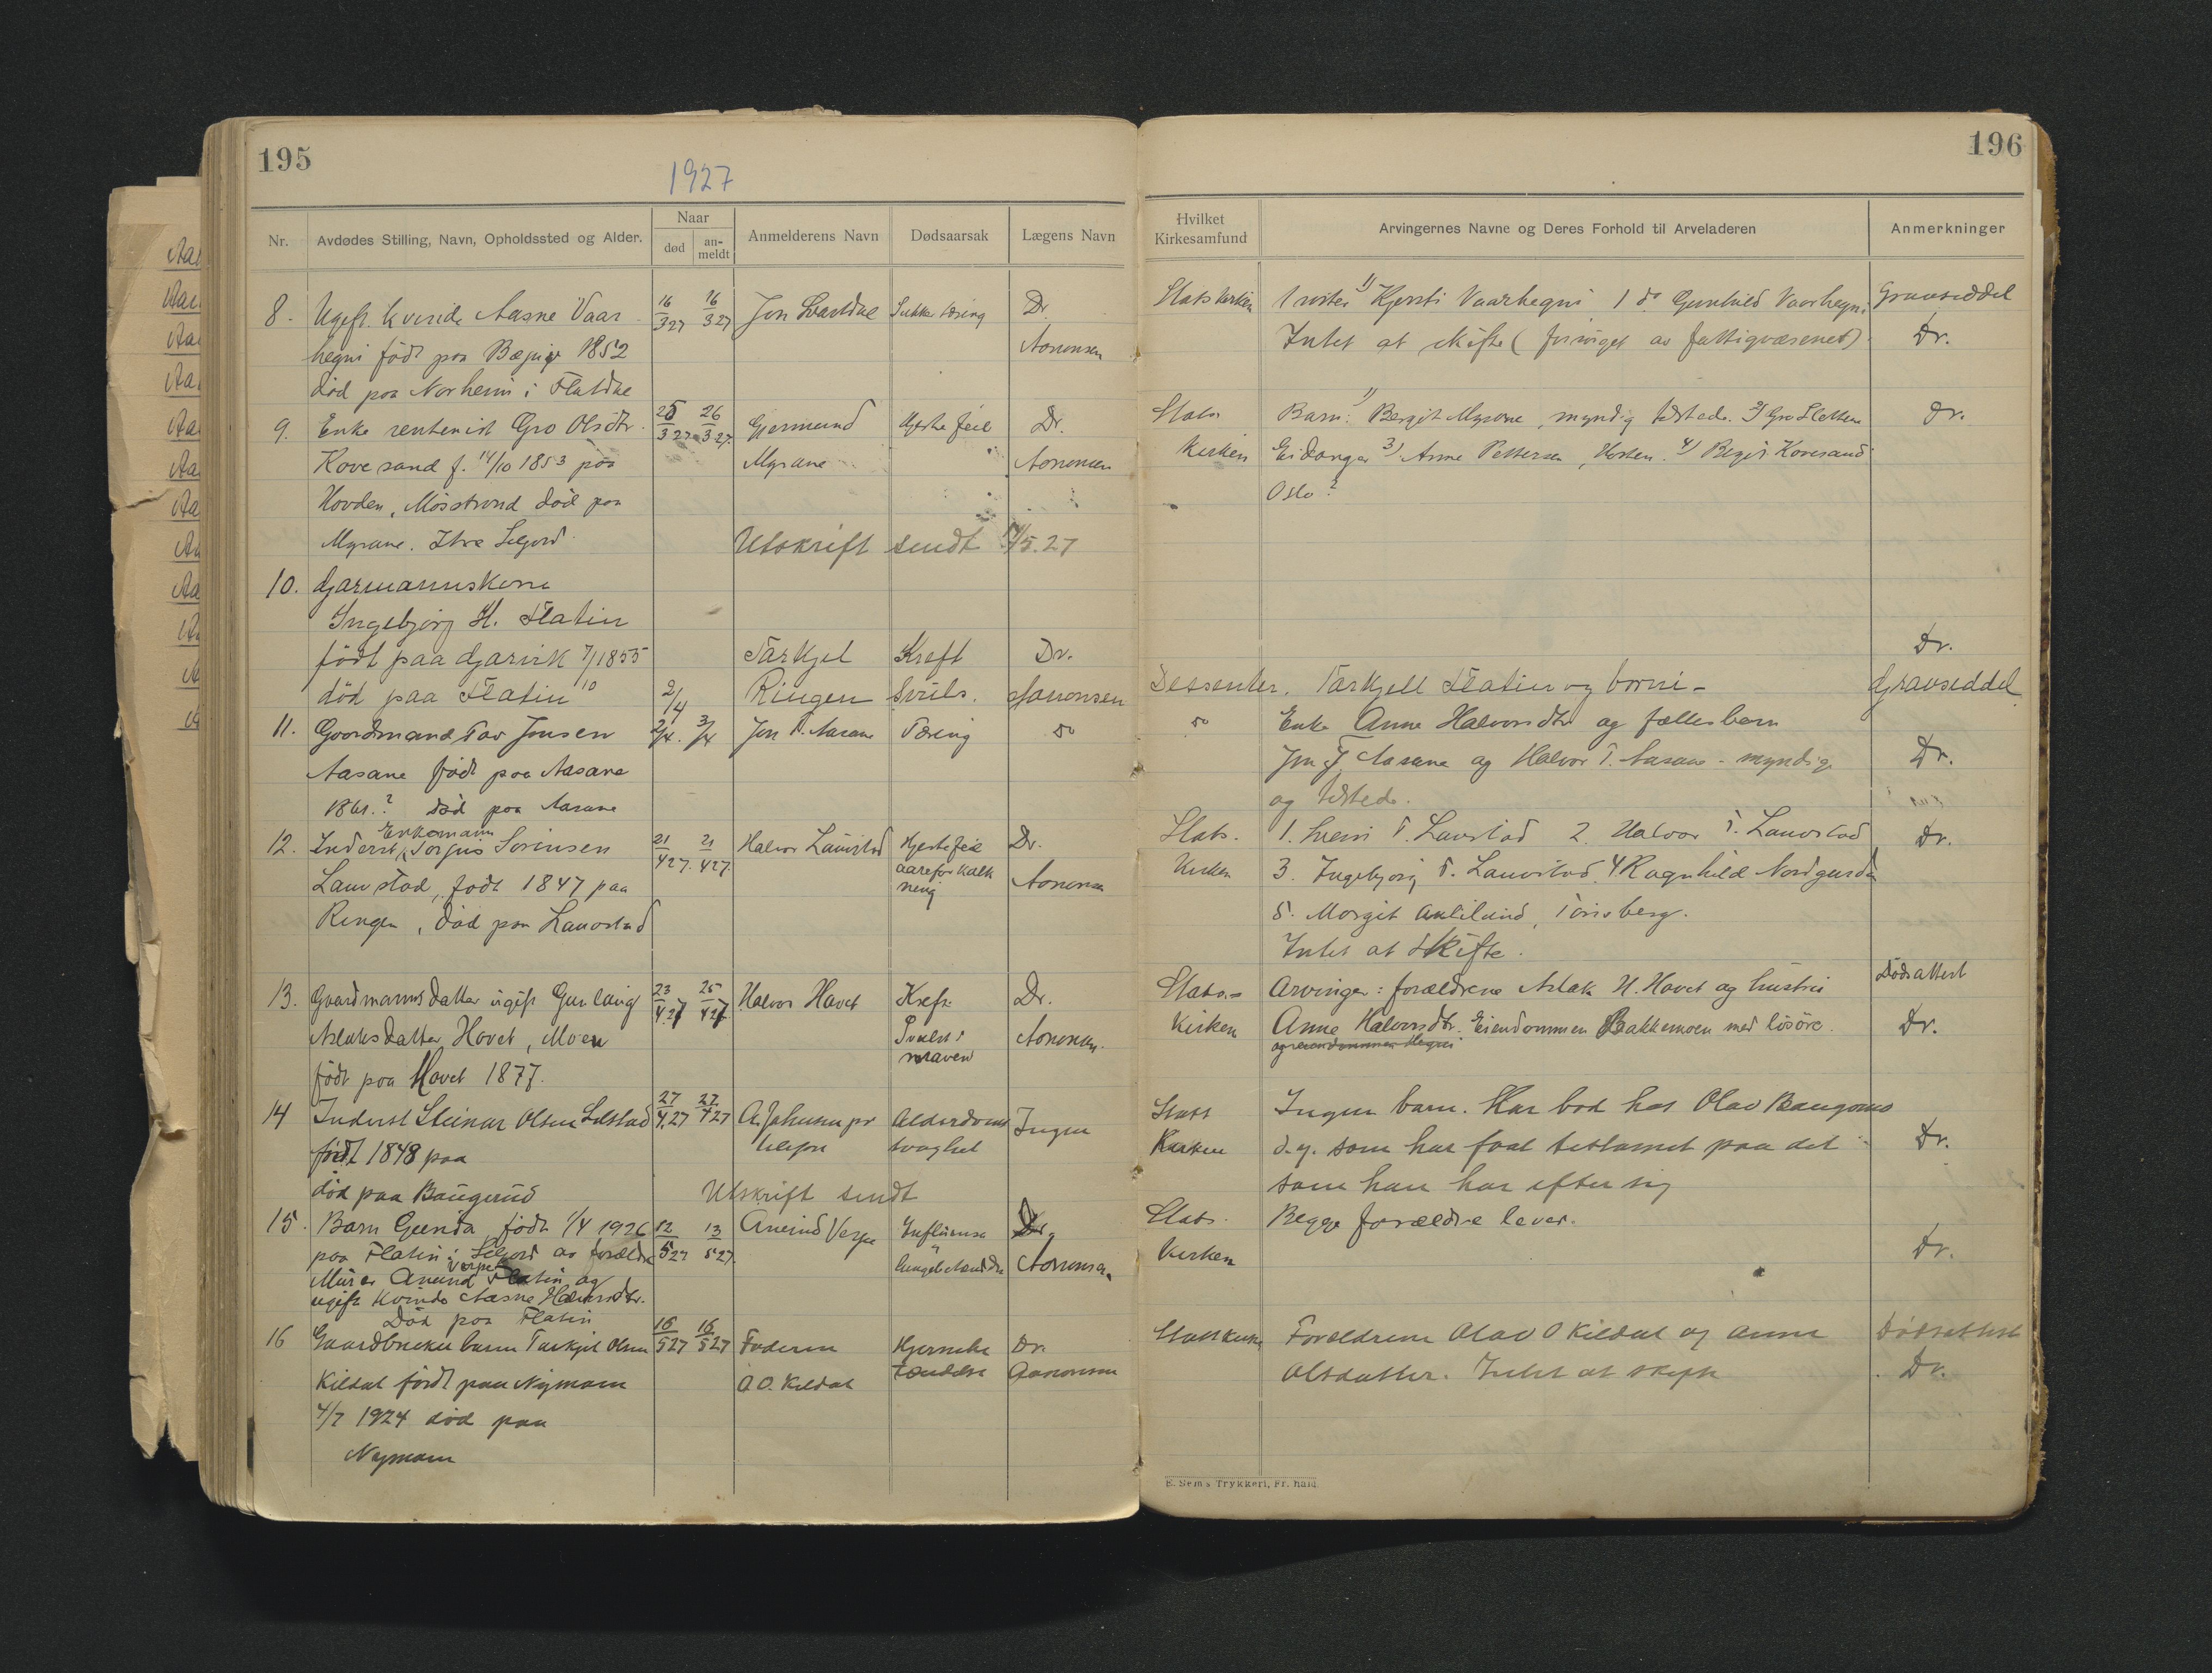 195
1927
Nr.
Avdødes Stilling, Navn, Opholdssted og Alder.
Naar
død
an-
meldt
Anmelderens Navn
Dødsaarsak
Lægens Navn
8. Ugift kvinde Aasne Vaar 16/3 27 16/3 27 Jon Svartdal Sukker tæring Dr.
hegni født paa Aanonsen
død paa Norheim i Flatdal
9. Enke rentenist Gro Olsdtr. 25/3 27 26/3 27. Gjermund Hjerte feil Dr.
Kovesand f. 14/10 1853 paa Myrane Aanonsen
Hovden, Mösstrond död paa
Myrane. Seljord. Utskrift sendt /5.27
10. Garmannskona
Ingebjørg H. Flatin
født paa Garvik 7/10 1855 Tarkjel Kreft Dr.
död paa Flatin 2/4 Ringen Svuls. Aanonsen
11. Goardmand Tov Jonsen 2/4. 3/4 Jon T. Aasane Tæring do
Aasane født paa Aasane
1861.? død paa Aasane
Enkemann
12. Inderst Torgus Sveinsen 21/4 27. 21/4 27. Halvor Lauvstad Hjertefeil Dr.
Lauvstad, født 1847 paa aareforkalk Aanonsen
ning
Ringen, død paa Lauvstad
13. Gaardmannsdatter ugift Gunlaug 23/4.27 25/4 27 Halvor Havet Kreft Dr.
Aslaksdatter Hovet, Moen Svulst i Aanonsen.
maven
født paa Hovet 1877.
14 Inderst Steinar Olsen Lilstad 27/4.27 27/4 27 A. Johnsen pr Alderdoms Ingen
født 1848 paa telefon svaghet
død paa Baugerud Utskrift sendt
15. Barn Gunda, født 1/4 1926 12/5 27 13/5 27. Anund Verpe Influensa Dr.
paa Flatin i Seljord av forældre
Verpe Lungebetændelse Aanonsen
Murer Anund Flatin og
ugift Kvinde Aasne Halvorsdtr.
Død paa Flatin
16 Gaardbruker barn Tarkjel Olsen 16/5 27 16/5 27 Faderen Hjernebe Dr.
Kildal født paa Nymoen O O. Kildal tændelse Aanonsen
4/7 1924 død paa
Nymoen
196
Hvilket
Kirkesamfund
Arvingernes Navne og Deres Forhold til Arveladeren
Anmerkninger
Statskirken 1 søster 1) Kjersti Vaarhegni 1 do Gunhild Vaarhegni Gravseddel
Intet at skifte ( forsørget av fattigvæsenet) Dr.
Stats Barn: 1) Bergit Myrane, myndig tilstede. 2) Gro Sletten Dr.
Kirken Eidanger 3) Anne Pettersen, Horten. 4) Birgit Kovesand
Oslo?
Dr.
Dessenter. Tarkjell Flatin og borni - Gravseddel
do Enke Anne Halvorsdtr og fællesbarn
Jon T. Aasane og Halvor T. Aasane - myndige Dr.
og tilstede.
Stats. 1. Svein T. Lauvstad 2. Halvor T. Lauvstad Dr.
Kirken 3. Ingebjørg T. Lauvstad. 4 Ragnhild Nordgarden
5. Margit, Tønsberg.
Intet at skifte.
Stats- Arvinger: forældrene Aslak H. Hovet og hustru Dødsattest
Kirken Anne Halvorsdtr. Eiendommen Bakkemoen med lösöre. Dr.
Stats Ingen barn. Har bod hos Olav Baugerud
Kirken d.y. som har faat testament paa det Dr.
som han har efter sig
Stats. Begge forældre lever.
Kirken Dr.
Statskirken Forældrene Olav O Kildal og Anne Dødsattest
Olsdatter. Intet at skifte Dr.
E. Sem's Trykkeri, Fr. hald.